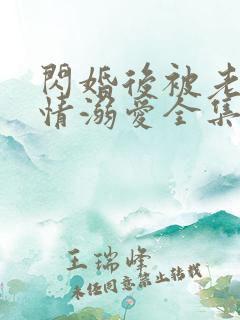 閃婚後被老
情溺愛全集
王瑞峰
未經同意禁止轉載